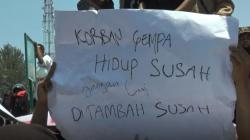 KORBAN GEMPA
HIDUP SUSAH
DITAMBAH SUSAH